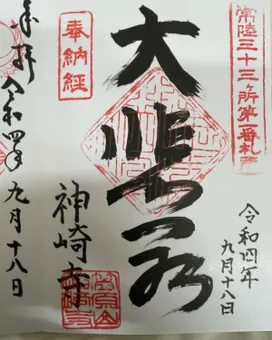 常陸三十三ヶ所第番札
令和四年
九月十八日
大悲
奉納経
神崎寺
奉拝 令和四年 九月十八日